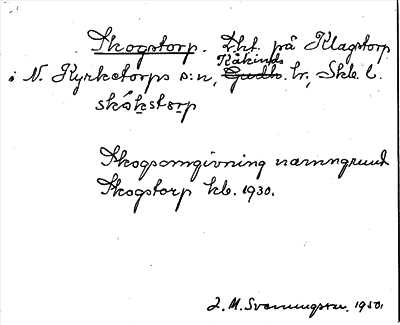 Skogstorp. Lht. på Klagstorp
Kåkinds
i N. Kyrketorps s:n, Gudh. hr, Skbl.
skókstorp
Skogsomgivning namngrund
Skogstorp kb. 1930.
J. M. Svenningson. 1950.